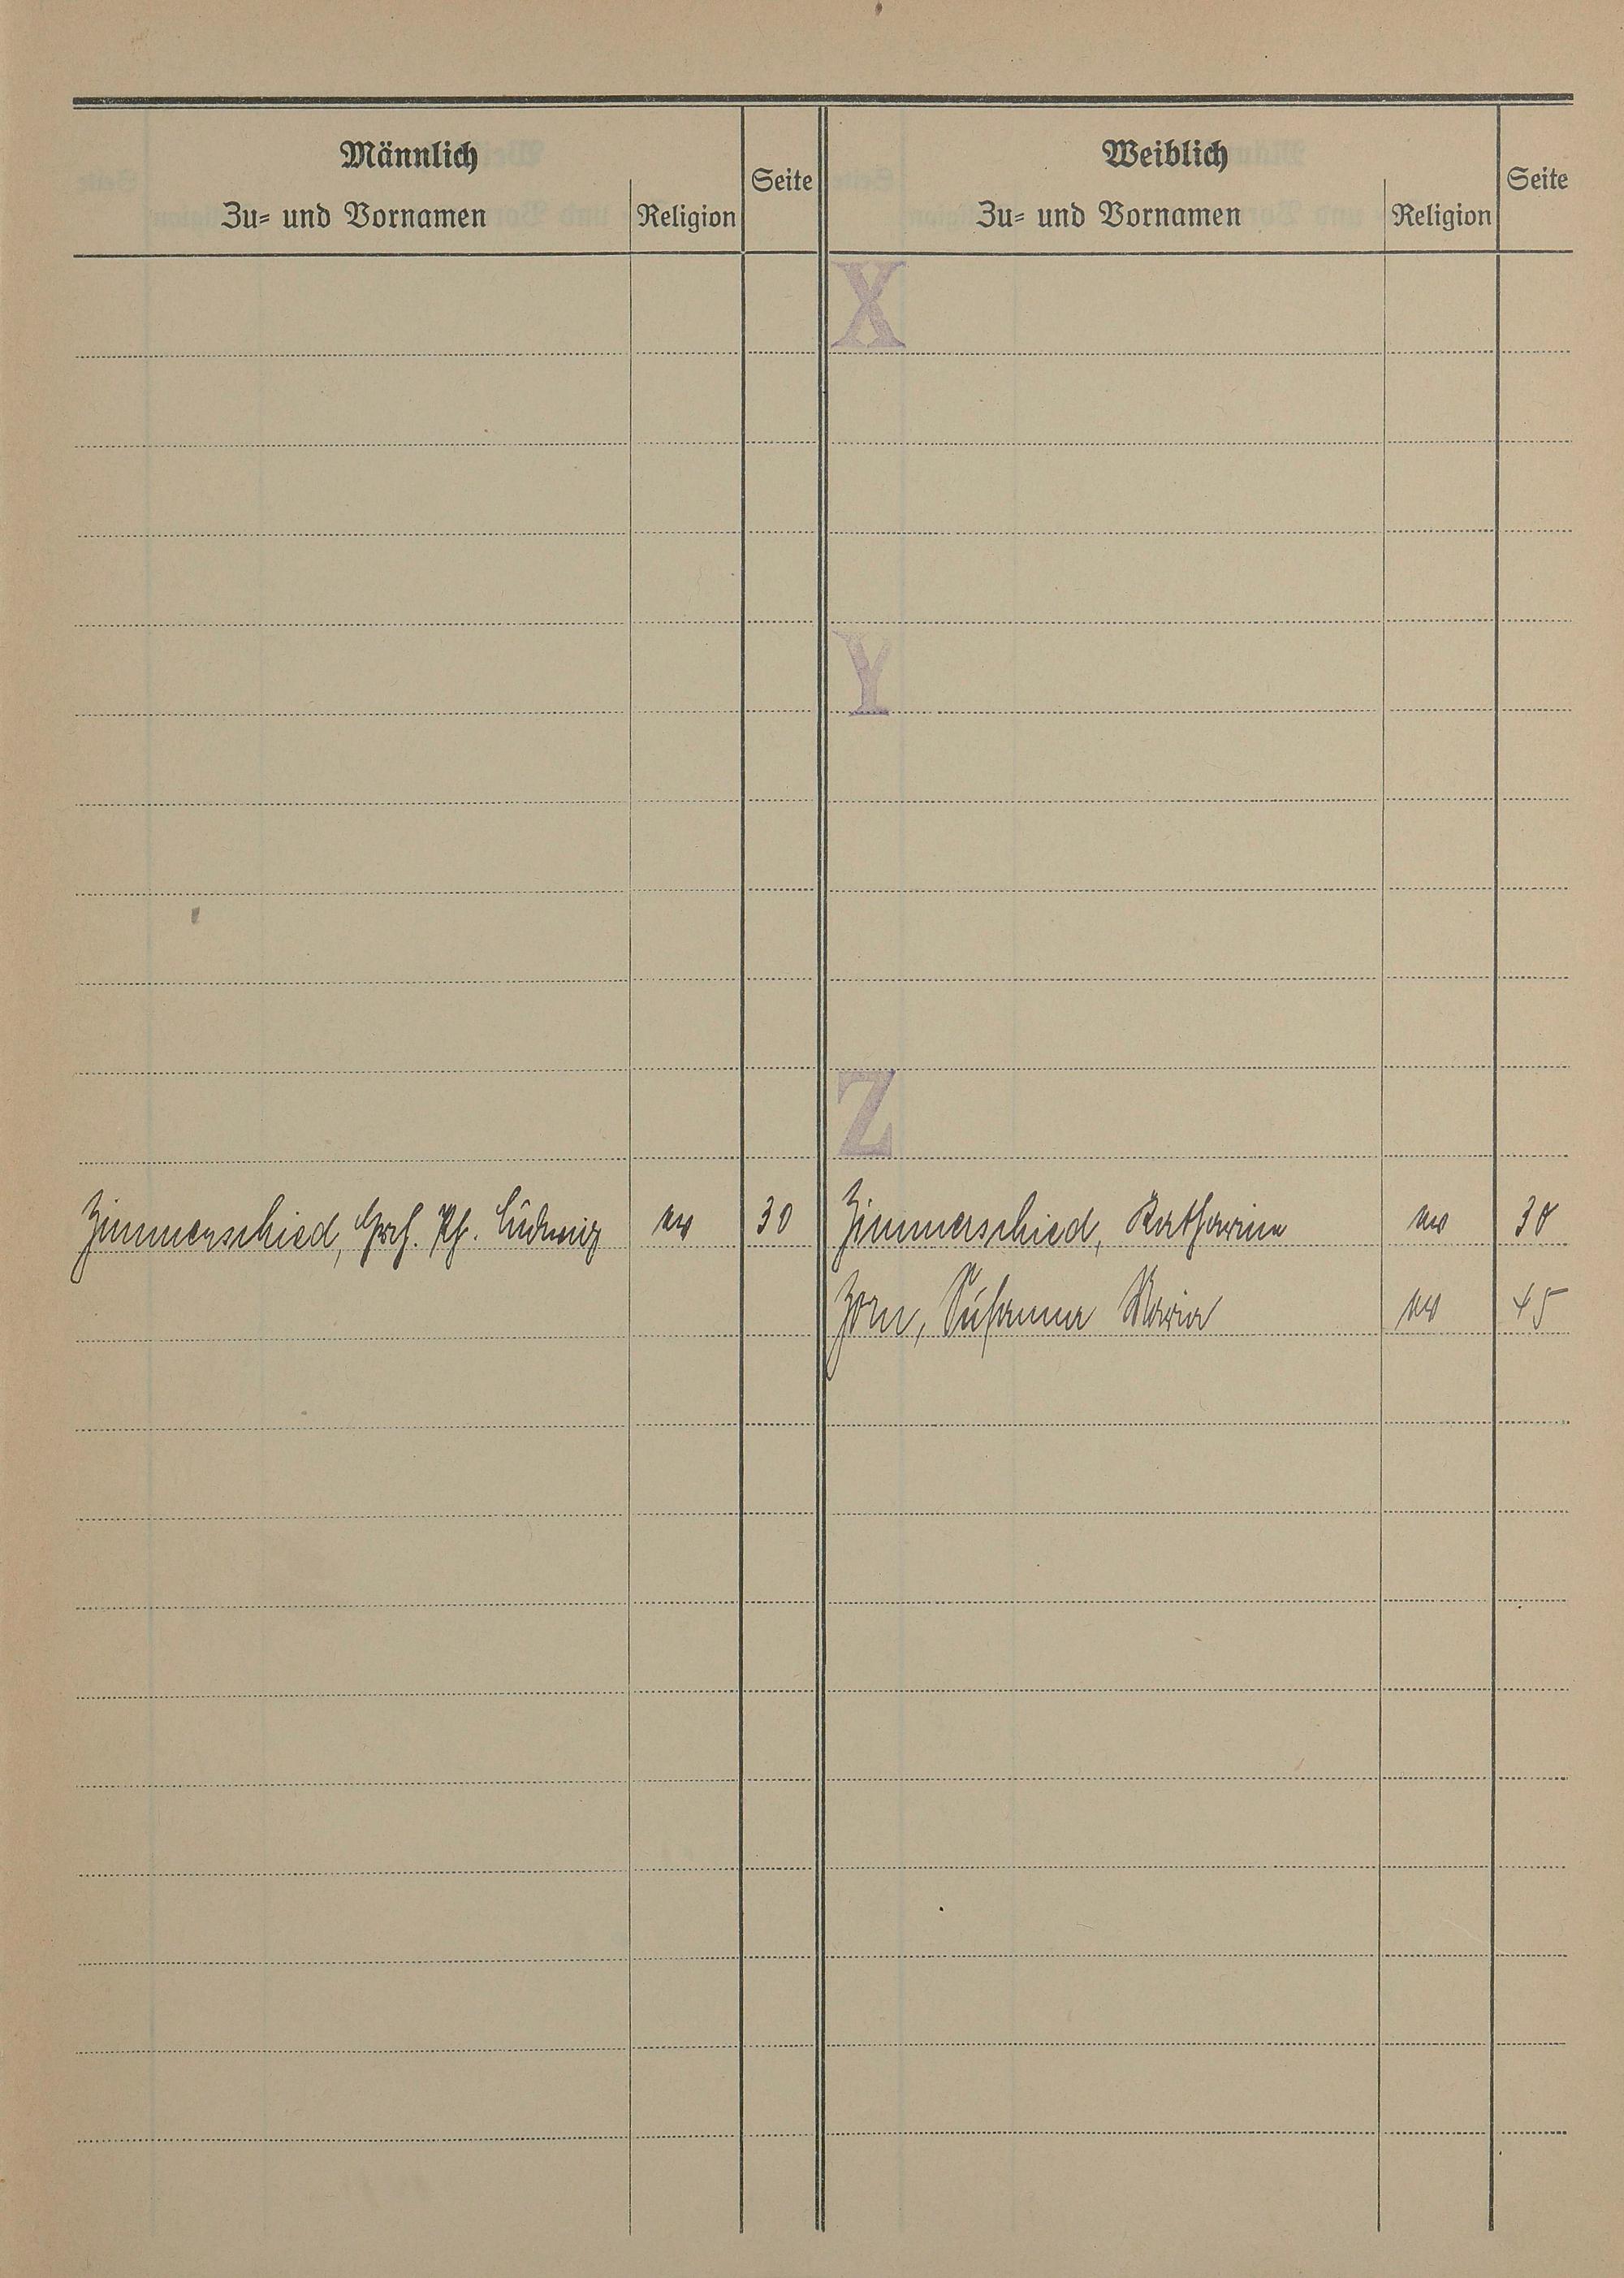 Männlich
Zu- und Vornamen
Religion
Seite
Weiblich
Zu- und Vornamen
Religion
Seite
X
Y
Z
Zimmerschied, Ph. Ludwig 30
Zimmerschied, Katharina 30
Zorn, Susanna Maria 45